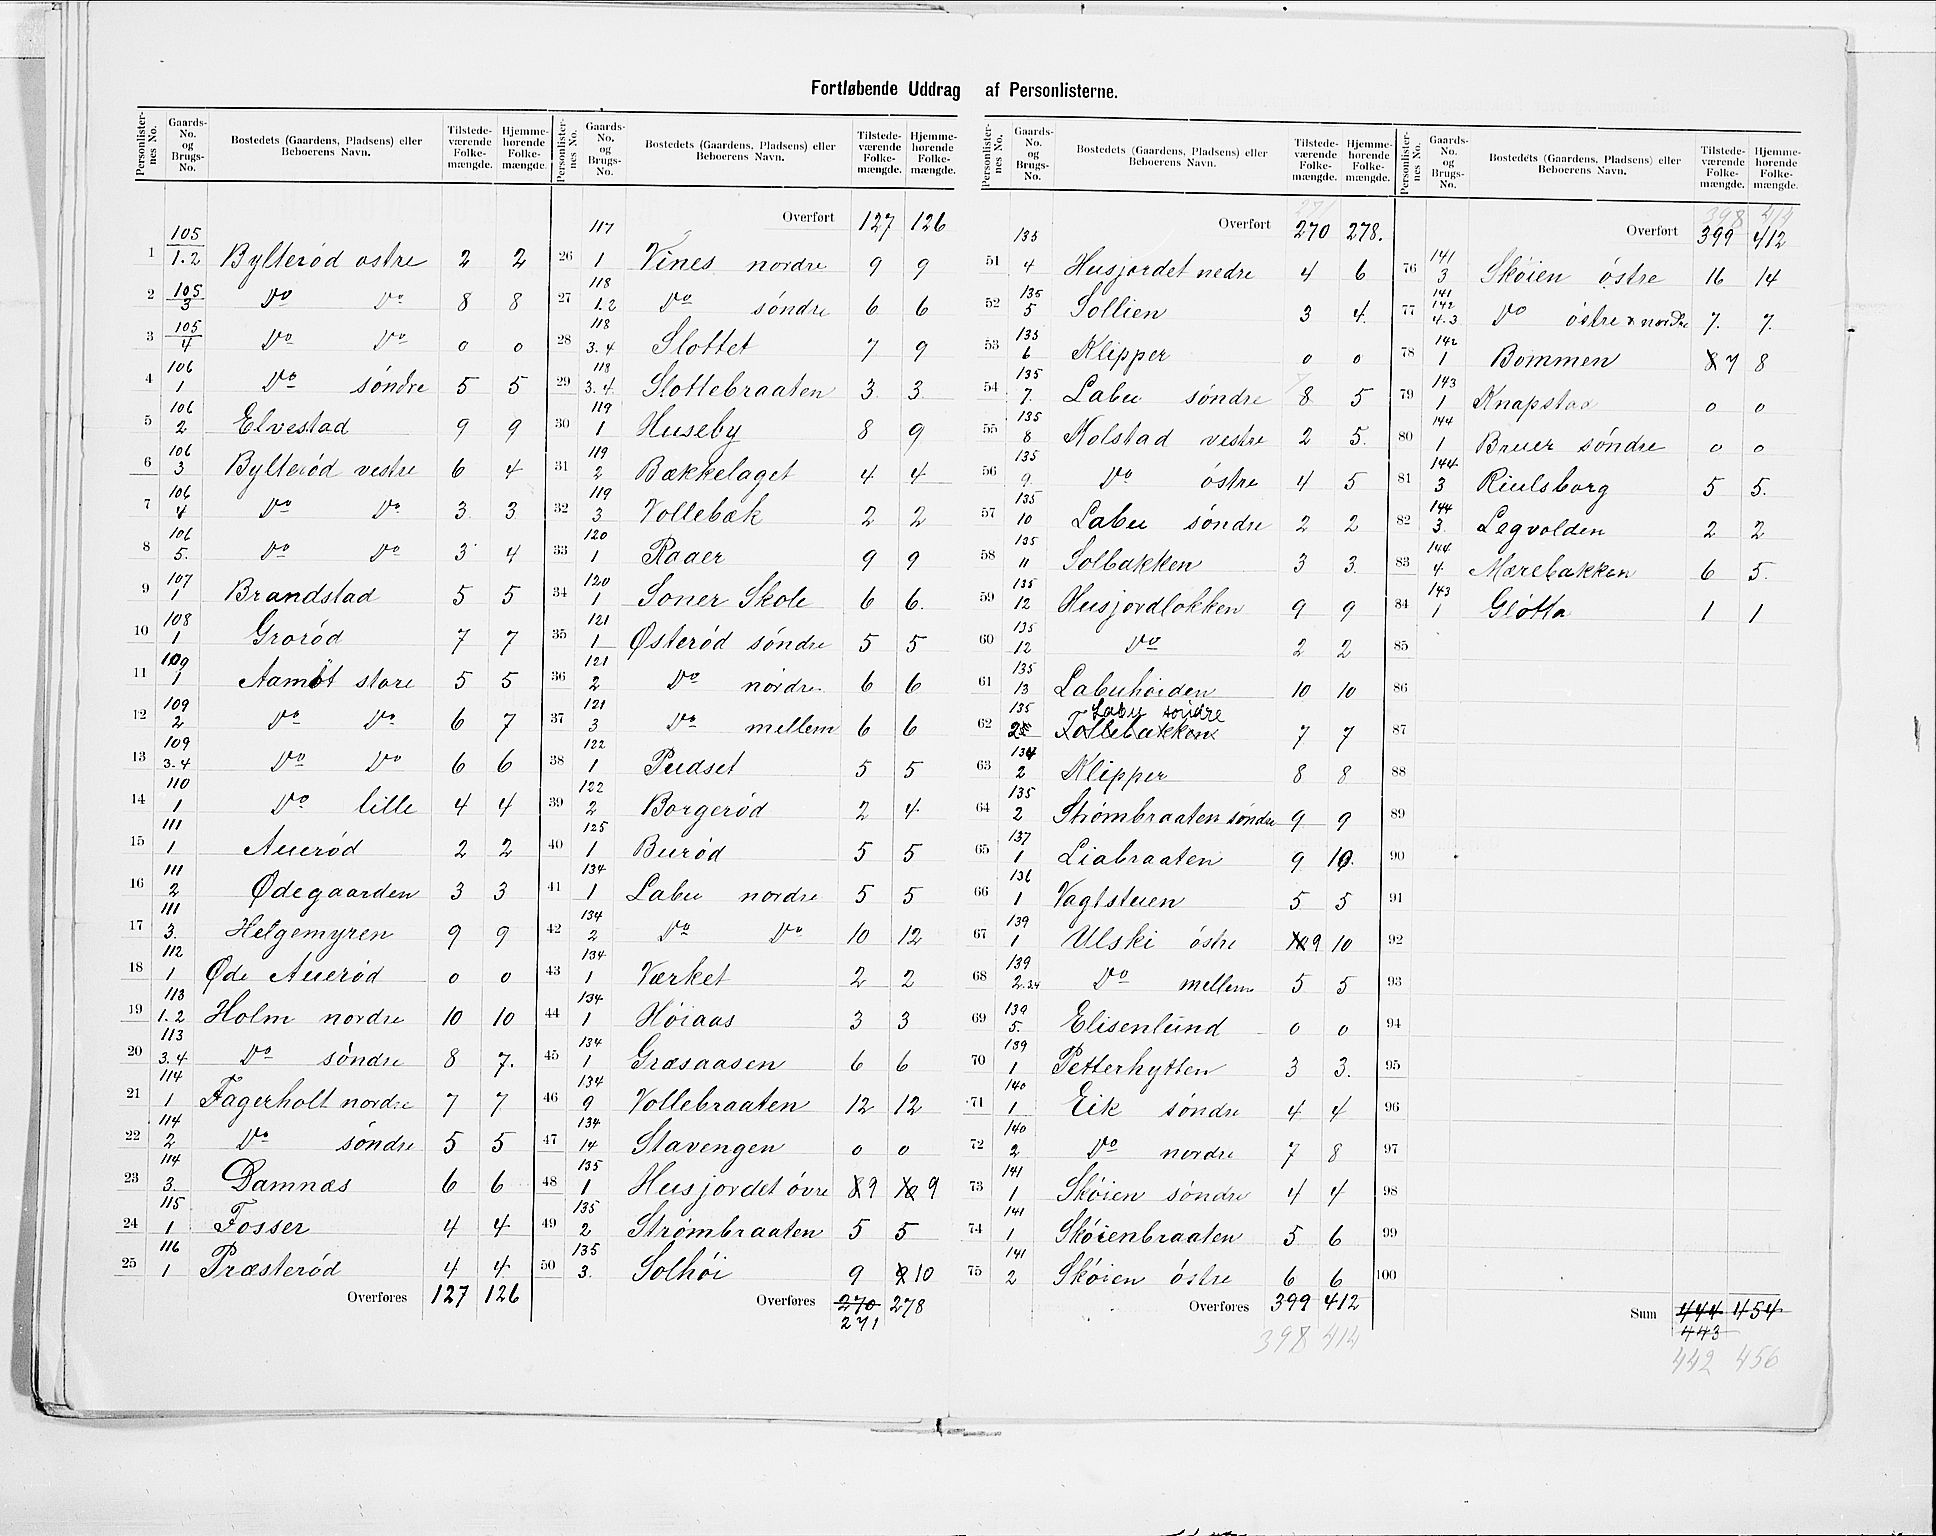 Fortløbende Uddrag af Personlisterne.
Personlister-nes No. Gaards-No. og Brugs-No. Bostedets (Gaardens, Pladsens) eller Beboerens Navn. Tilstede-værende Folke-mængde. Hjemme-hørende Folke-mængde.
1 105/1.2 Bylterød østre 2 2
2 105/3 Do Do 8 8
3 105/4 Do Do 0 0
4 106/1 Do søndre 5 5
5 106/2 Elvestad 9 9
6 106/3 Bylterød vestre 6 4
7 106/4 Do Do 3 3
8 106/5. Do Do 3 4
9 107/1 Brandstad 5 5
10 108/1 Grorød 7 7
11 109/1 Aamøt store 5 5
12 109/2 Do Do 6 7
13 109/3.4 Do Do 6 6
14 110/1 Do lille 4 4
15 111/1 Auerød 2 2
16 111/2 Ødegaarden 3 3
17 111/3. Helgemyren 9 9
18 112/1 Øde Auerød 0 0
19 113/1.2 Holm nordre 10 10
20 113/3.4 Do søndre 8 7.
21 114/1 Fagerholt nordre 7 7
22 114/2 Do søndre 5 5
23 114/3. Damnæs 6 6
24 115/1 Fosser 4 4
25 116/1 Præsterød 4 4
Overføres 127 126
Personlister-nes No. Gaards-No. og Brugs-No. Bostedets (Gaardens, Pladsens) eller Beboerens Navn. Tilstede-værende Folke-mængde. Hjemme-hørende Folke-mængde.
Overført 127 126
26 117/1 Vines nordre 9 9
27 118/1.2 Do søndre 6 6
28 118/3.4 Slottet 7 9
29 118/3.4 Slottebraaten 3 3
30 119/1 Huseby 8 9
31 119/2 Bækkelaget 4 4
32 119/3 Vollebæk 2 2
33 120/1 Raaer 9 9
34 120/1 Soner Skole 6 6.
35 121/1 Østerød søndre 5 5
36 121/2 Do nordre 6 6
37 121/3 Do mellem 6 6
38 122/1 Pudset 5 5
39 122/2 Borgerød 2 4
40 125/1 Burød 5 5
41 134/1 Labu nordre 5 5
42 134/2 Do Do 10 12
43 134/1 Værket 2 2
44 134/1 Høiaas 3 3
45 134/1 Græsaasen 6 6
46 134/9 Vollebraaten 12 12
47 134/14 Stavengen 0 0
48 135/1 Husjordet øvre 8 9 10 9
49 135/2 Strømbraaten 5 5
50 135/3. Solhøi 9 9 10
Overføres 270 278
271
Personlister-nes No. Gaards-No. og Brugs-No. Bostedets (Gaardens, Pladsens) eller Beboerens Navn. Tilstede-værende Folke-mængde. Hjemme-hørende Folke-mængde.
271
Overført 270 278.
51 135/4 Husjordet nedre 4 6
52 135/5 Sollien 3 4.
53 135/6 Klipper 0 0
54 135/7. Labu søndre 8 5
55 135/8 Kolstad vestre 2 5.
56 135/9. Do østre 4 5
57 135/10 Labu søndre 2 2
58 135/11 Solbakken 3 3.
59 135/12 Husjordløkken 9 9
60 135/12 Do 2 2
61 135/13 Labuheiden 10 10
Labu søndre
62 135 Tollebakken 7 7
63 134/2 Klipper 8 8
64 135/2 Strømbraaten søndre 9 9
65 137/1 Liabraaten 9 10.
66 136/1 Vagtstuen 5 5
67 139/1 Ulski østre 10 9 10
68 139/2.3.4 Do mellem 5 5
69 139/5. Elisenlund 0 0
70 139/1 Petterhytten 3 3.
71 140/1 Eik søndre 4 4
72 140/2 Do nordre 7 8
73 141/1 Skøien søndre 4 4
74 141/1 Skøienbraaten 5 6
75 141/2 Skøien østre 6 6
Overføres 399 412
398 414
Personlister-nes No. Gaards-No. og Brugs-No. Bostedets (Gaardens, Pladsens) eller Beboerens Navn. Tilstede-værende Folke-mængde. Hjemme-hørende Folke-mængde.
398 414
Overført 399 412
76 141/3 Skøien østre 16 14
77 141 142/4.3 Do østre & nordre 7. 7.
78 142/1 Bommen 8 7 8
79 143/1 Knapstad 0 0
80 144/1 Bruer søndre 0 0
81 144/3 Riulsborg 5 5.
82 144/3. Legvolden 2 2
83 144/4. Mærebakken 6 5.
84 143/1 Gløtta 1 1
85
86
87
88
89
90
91
92
93
94
95
96
97
98
99
100
Sum 444 454
443
442 456